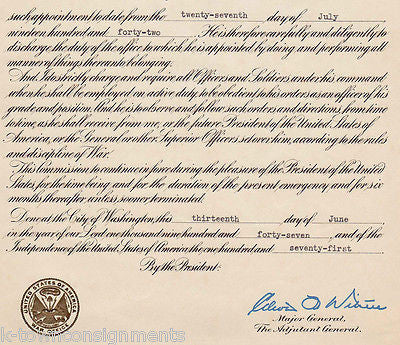 such appointment to date from the twenty-seventh day of July
nineteen hundred and forty-two . He is therefore carefully and diligently to
discharge the duty of the office to which he is appointed by doing and performing all
manner of things thereunto belonging.
And I do strictly charge and require all Officers and Soldiers under his command
when he shall be employed on active duty to be obedient to his orders as an officer of his
grade and position. And he is to observe and follow such orders and directions, from time
to time, as he shall receive from me, or the future President of the United States of
America, or the General or other Superior Officers set over him, according to the rules
and discipline of War.
This Commission to continue in force during the pleasure of the President of the United
States for the time being and for the duration of the present emergency and for six
months thereafter unless sooner terminated.
Done at the City of Washington, this thirteenth day of June ,
in the year of our Lord one thousand nine hundred and forty-seven , and of the
Independence of the United States of America the one hundred and seventy-first .
By the President:
Major General,
The Adjutant General.
UNITED STATES OF AMERICA
WAR OFFICE
k-townconsignments